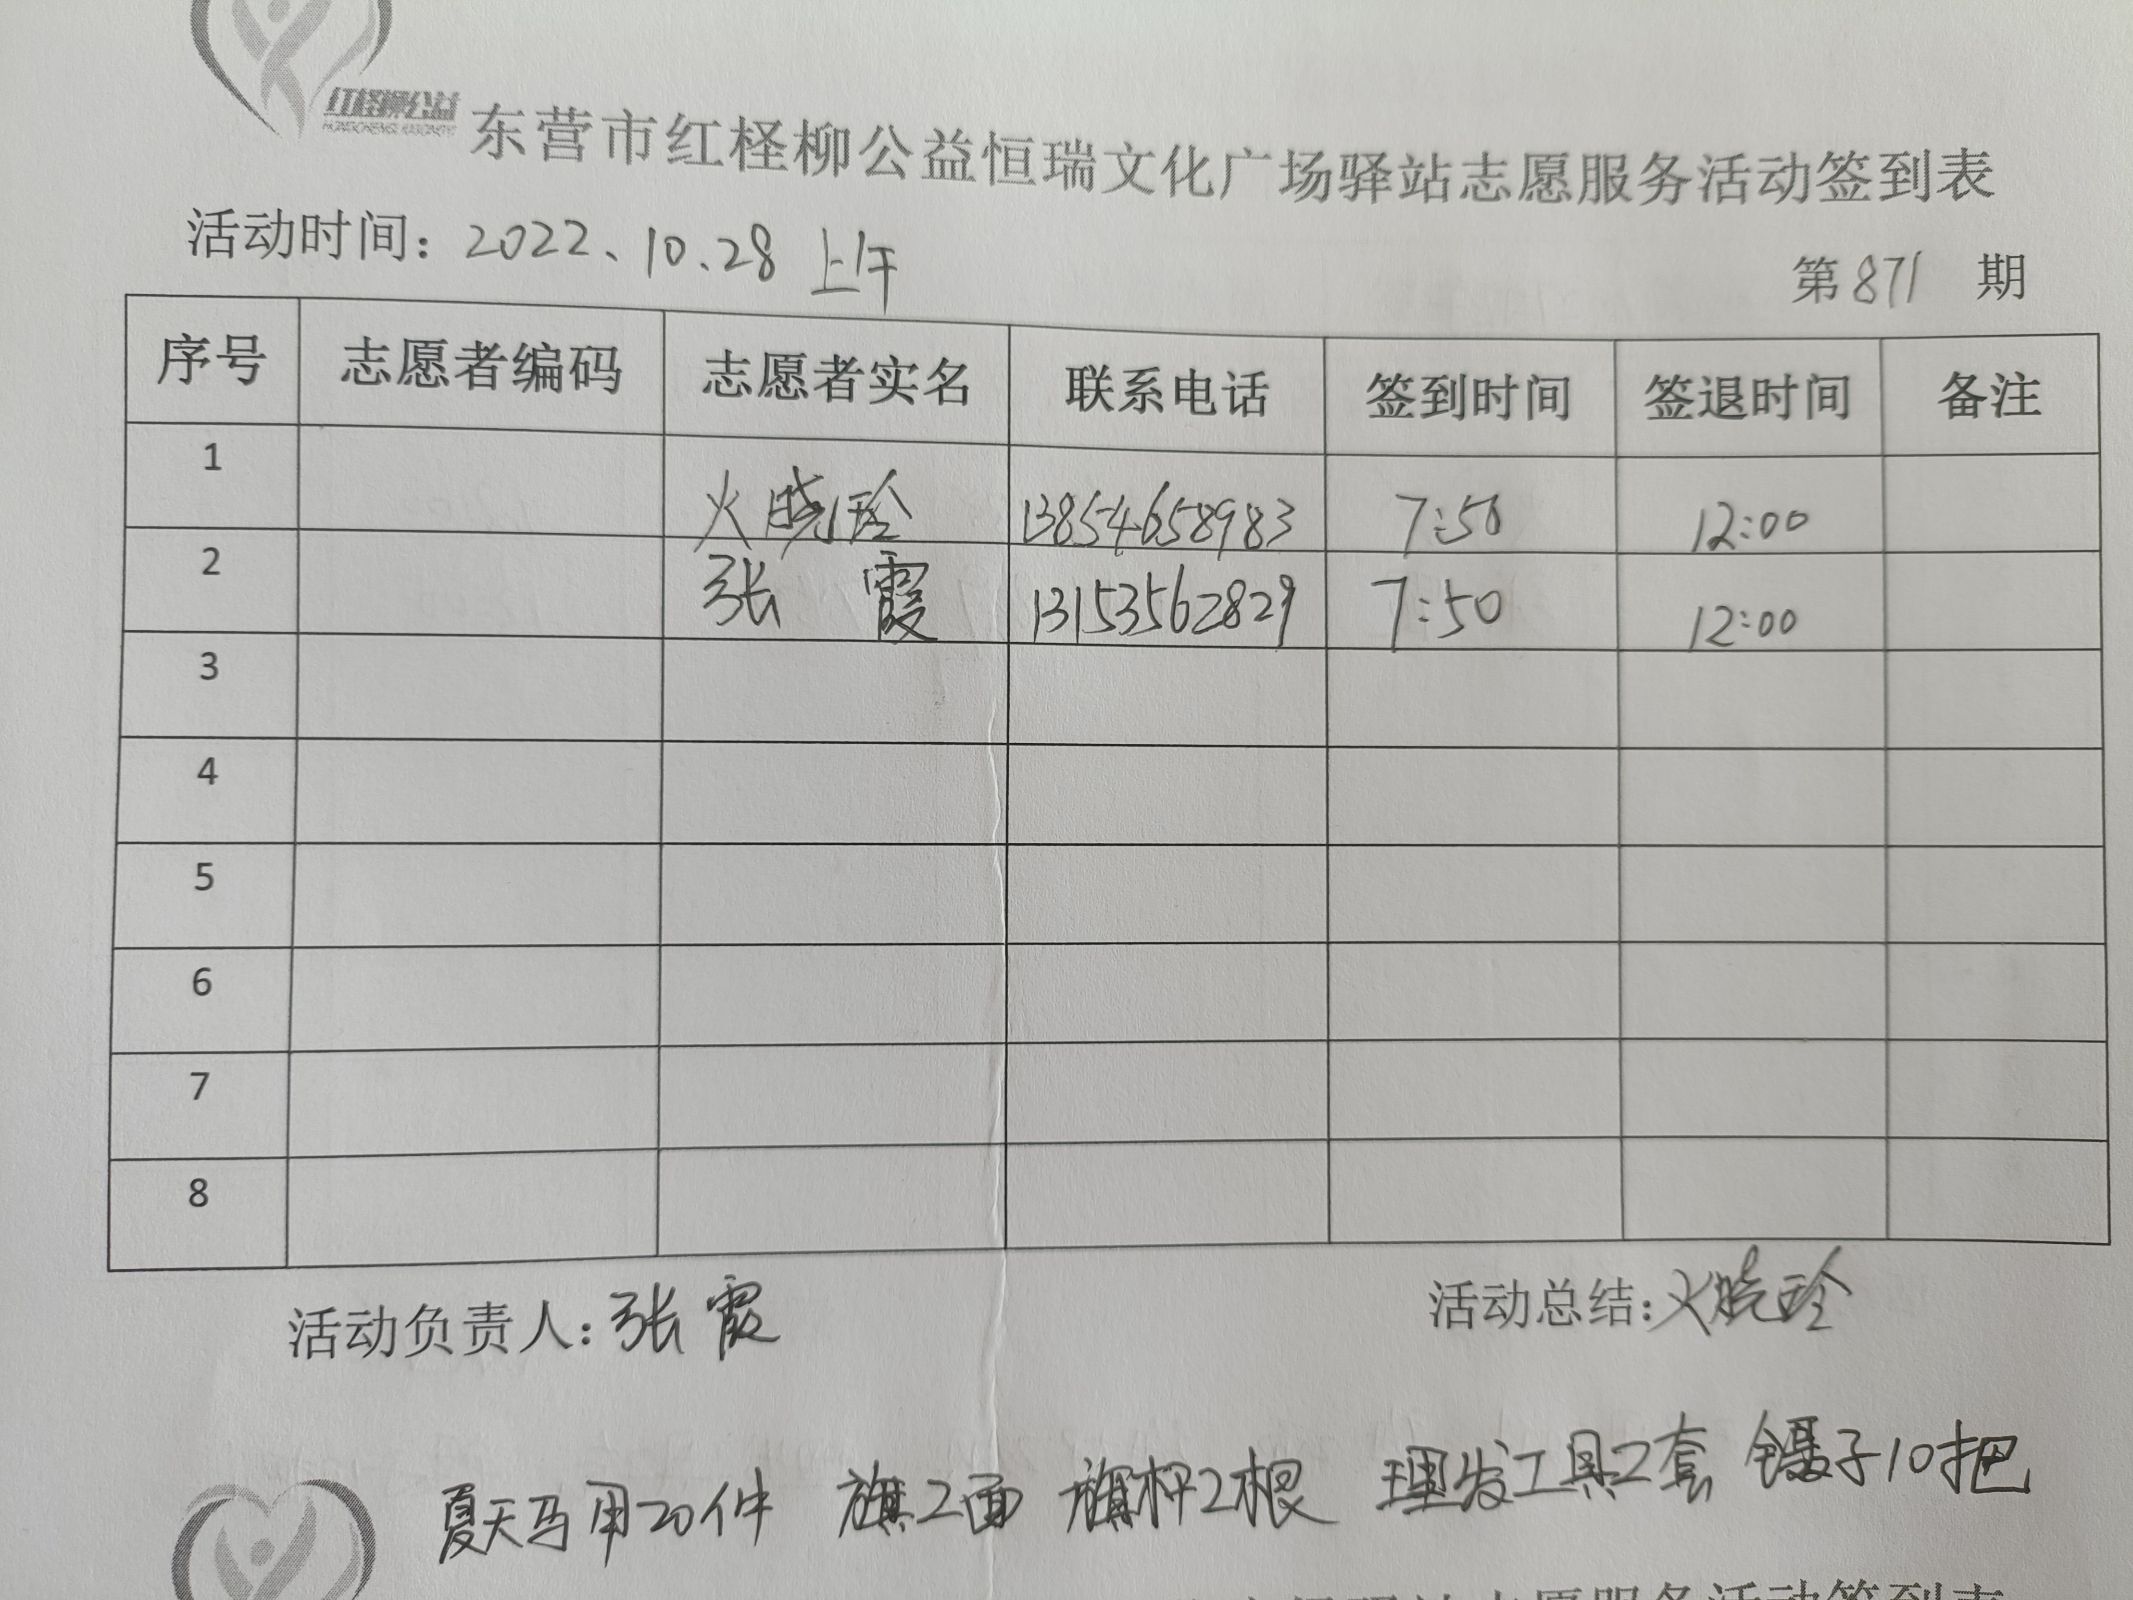 红柽柳公益
东营市红柽柳公益恒瑞文化广场驿站志愿服务活动签到表
活动时间：2022、10、28 上午
第871期
序号 志愿者编码 志愿者实名 联系电话 签到时间 签退时间 备注
1 火晓玲 13854658983 7:50 12:00
2 张霞 13153562829 7:50 12:00
3
4
5
6
7
8
活动负责人：张霞 活动总结：火晓玲
夏天马甲20件 旗2面 旗杆2根 理发工具2套 镊子10把
志愿服务活动签到表